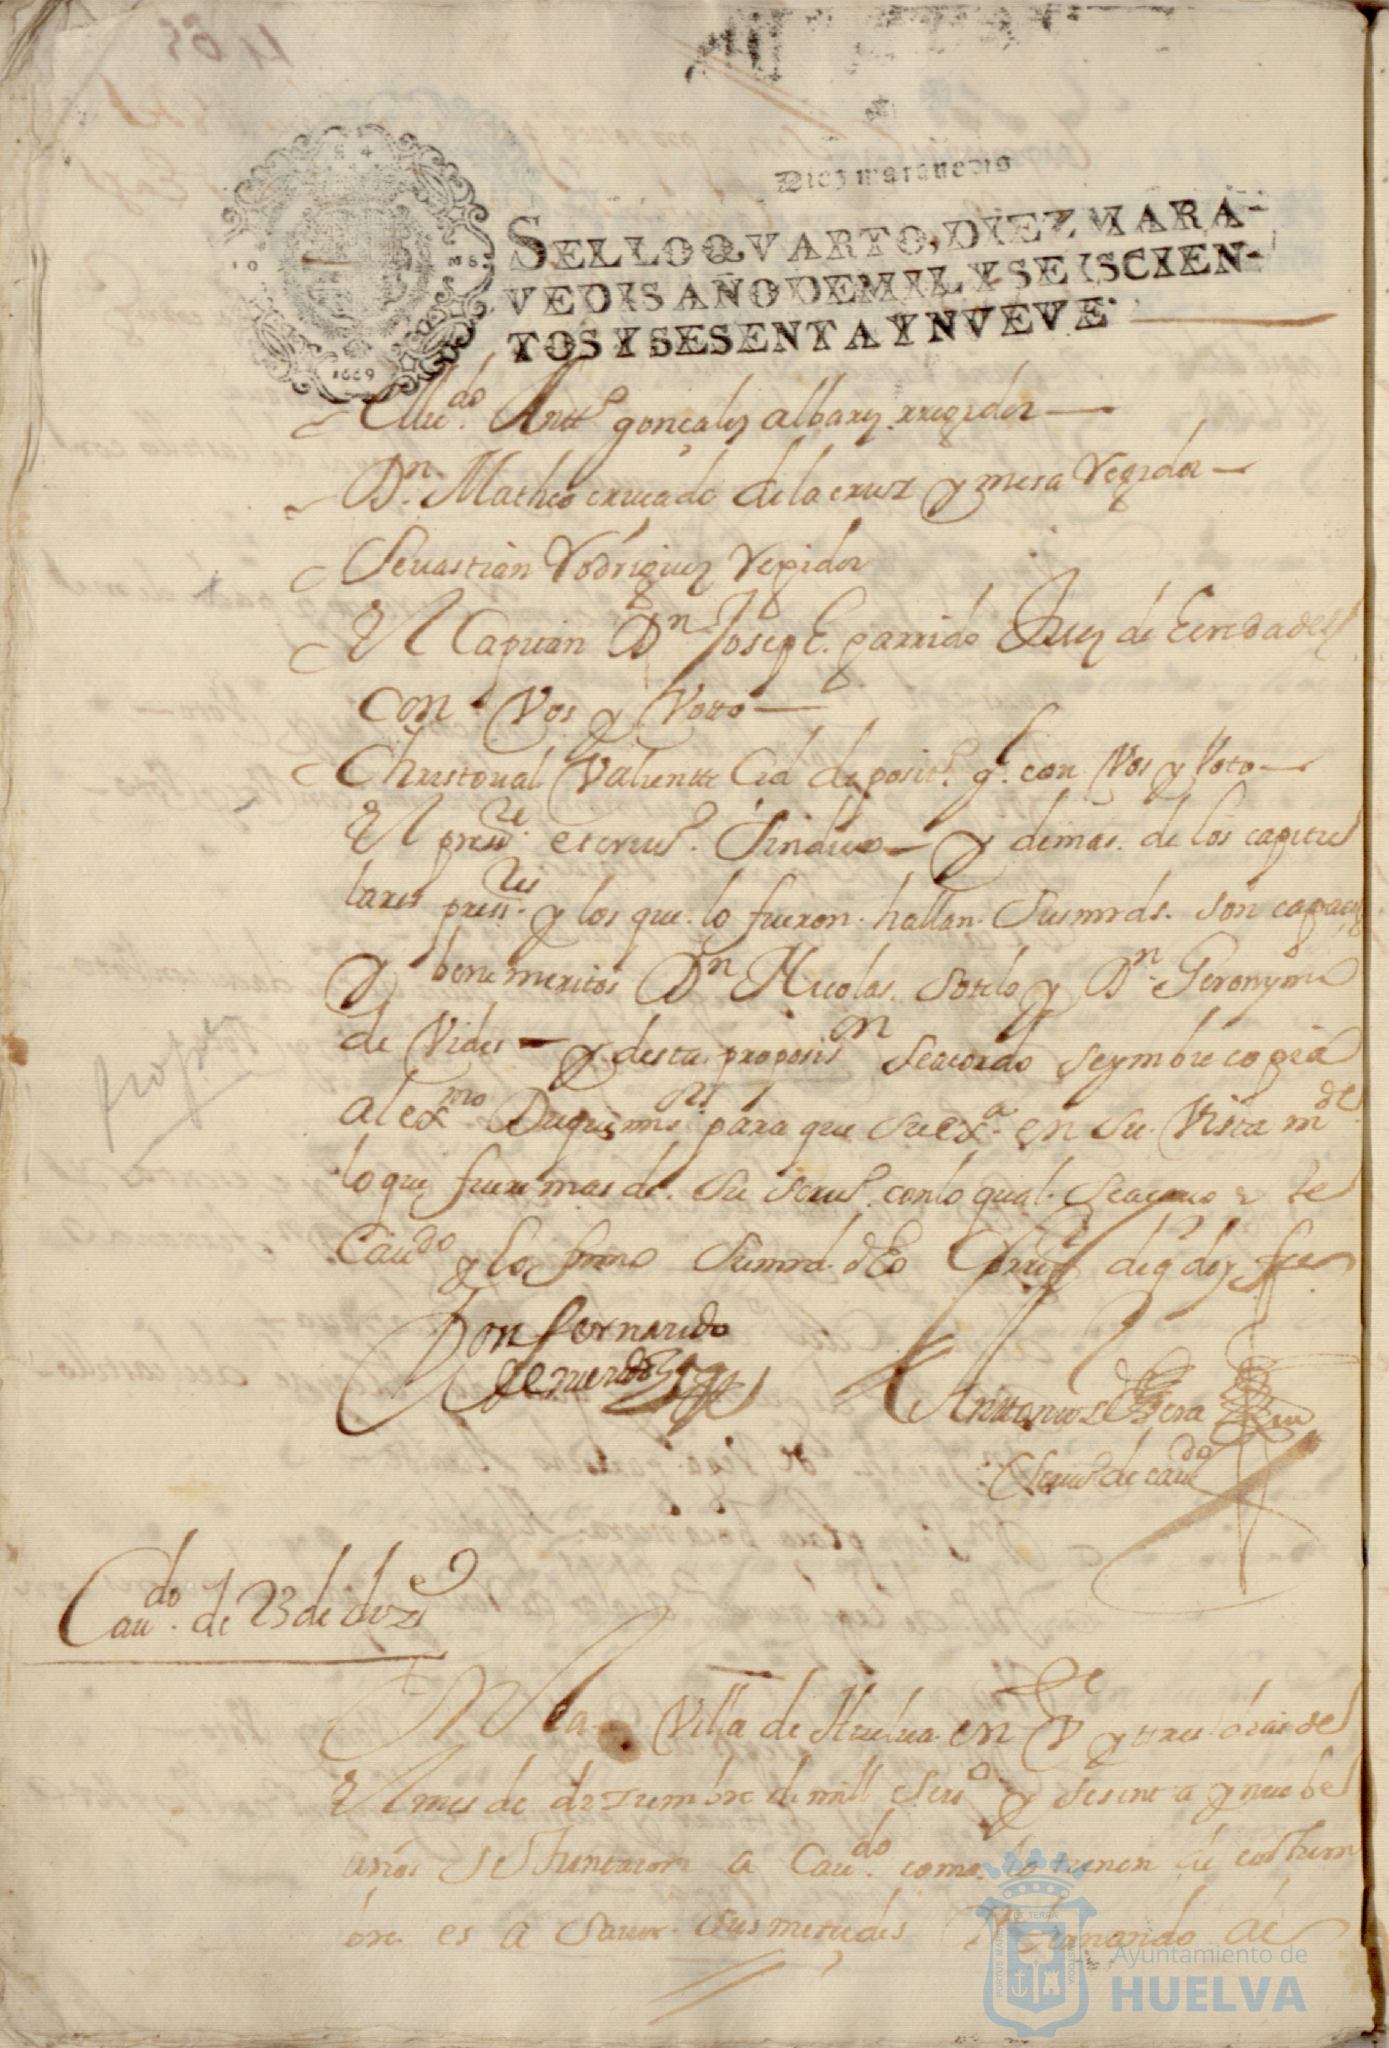 Diez maravedis
SELLO QVARTO, DIEZ MARA-
VEDIS AÑO DE MIL Y SEISCIEN-
TOS Y SESENTA Y NVEVE.
1669
Antt.º gonçales albares rregidor
Dn. Matheo cruçado de la cruz y mesa Regidor
Sevastian Rodriguez Regidor
El Capitan Dn Joseph garrido Juez de heredades
con Vos y Votto
Christoual Valiente Cid deposit.º g.l con Vos y Voto
El press.te escriu.º Sindico y demas de los capitu
lares press.tes y los que lo fueron hallan Susmrds. son capaçes
y benemeritos Dn Nicolas Sotelo y Dn Geronymo
de Vides y desta proposis.on se acordo se ymbie copia
al ex.mo Duque mi s.r para que su ex.a en su Vista m.de
lo que fuere mas de su seru.º con lo qual se acauo este
Cau.do y lo firmo Sumrd. dho Corre.r de q doy fee
Don fernando
Anttonio de
Escriu.º de cau.do
Cau.do de 23 de diz.e
En la Villa de Huelua en Ve.te y tres dias de
El mes de diziembre de mill seis.º y sesenta y nuebe
años se Juntaron a Cau.do como lo tienen de costum
bre es a sauer sus merçedes Dn fernando de
Ayuntamiento de
HUELVA